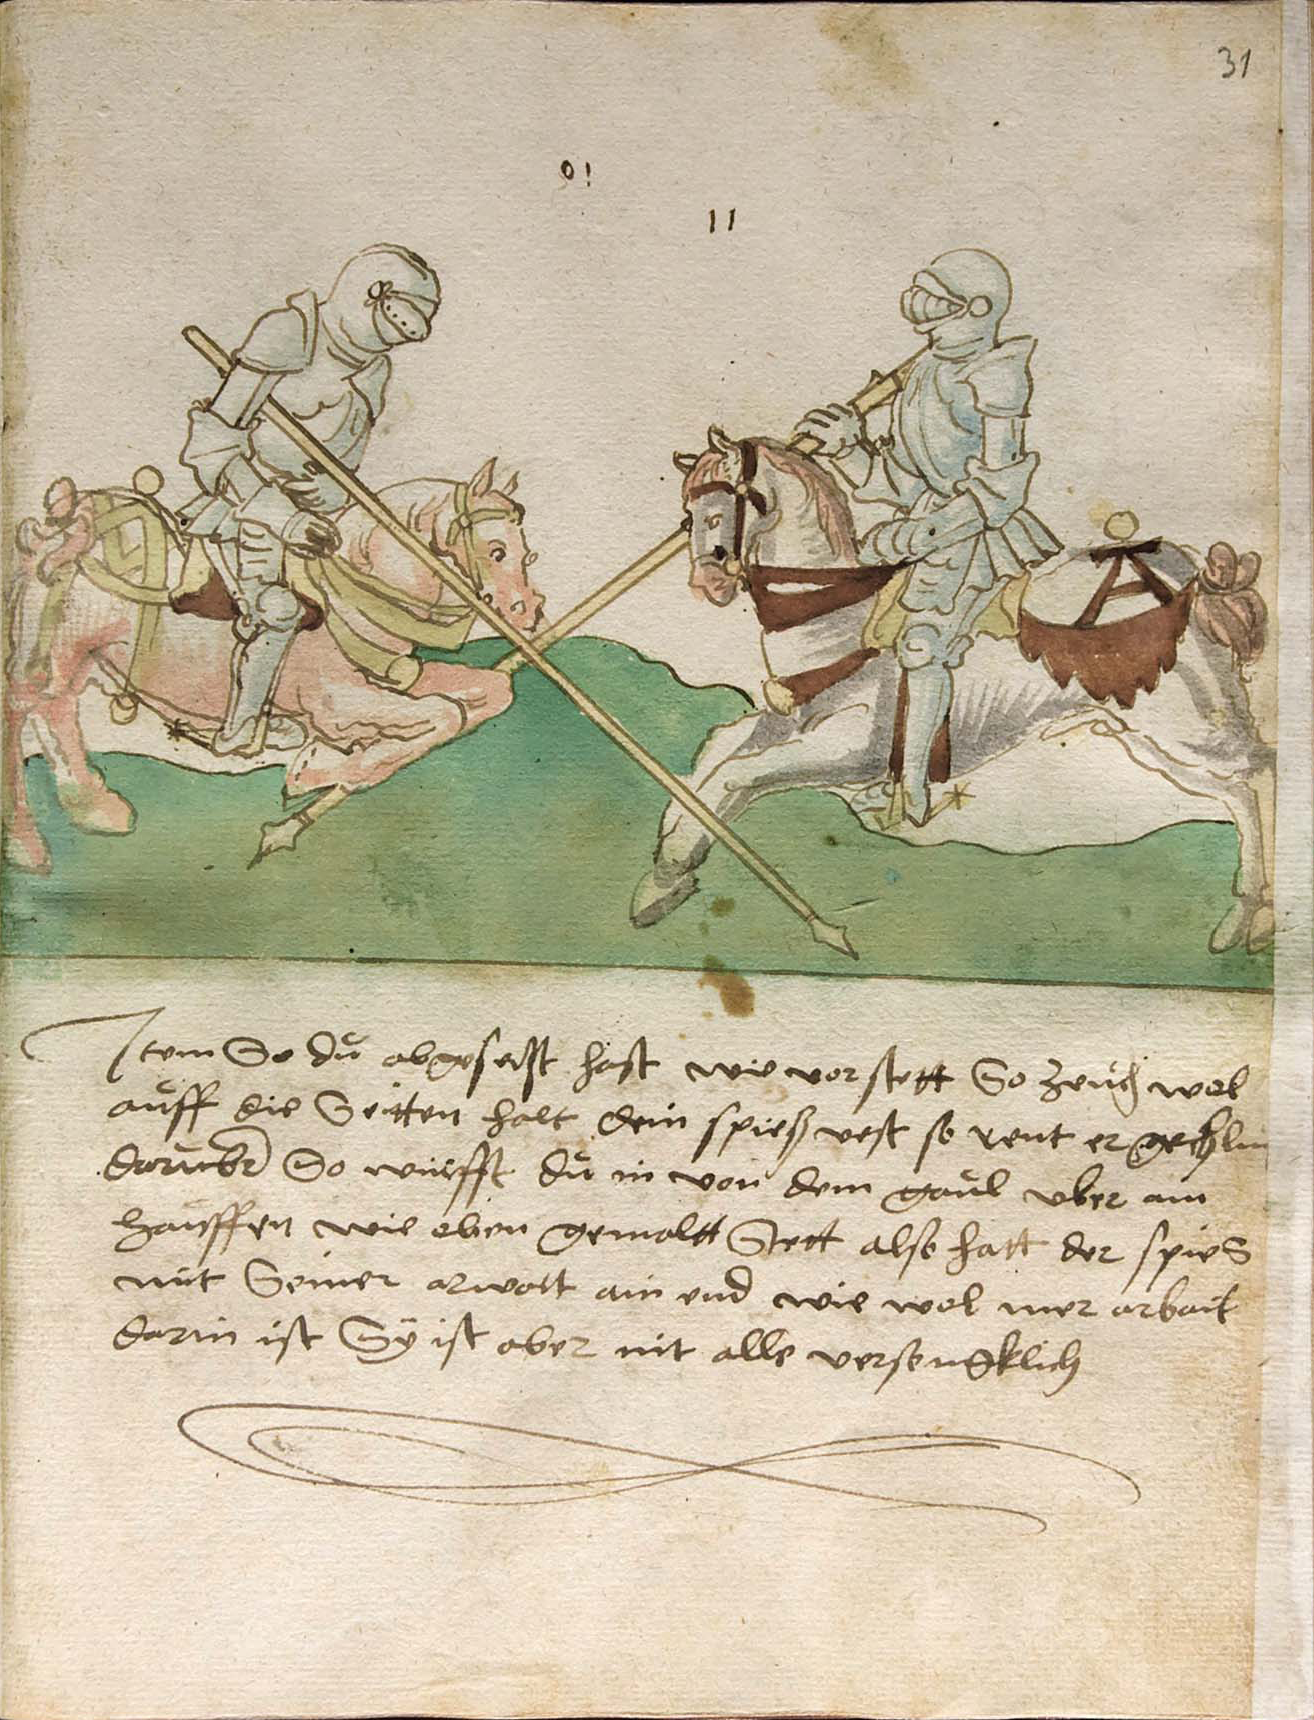 31
o!
11
Item So dü abgesetzt hast wie vor stett So zeuch wol
aüff die Seitten halt dein spieß vest so rent er gechling
darüber So würfft dü in von dem gaül vber ain
haüffen wie oben gemaltt Stett also hatt der spies
mit Seiner arbatt ain end wie wol mer arbait
darin ist Sÿ ist aber nit alle